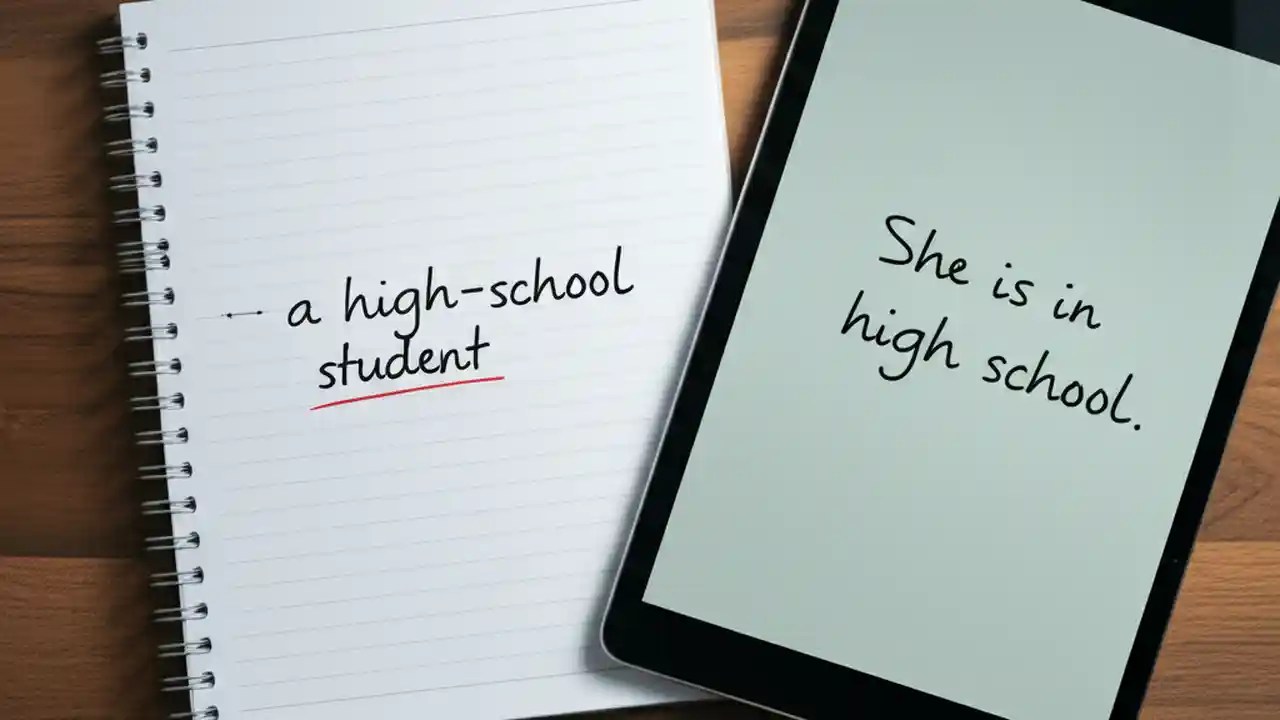 a high-school
student
She is in
high school.